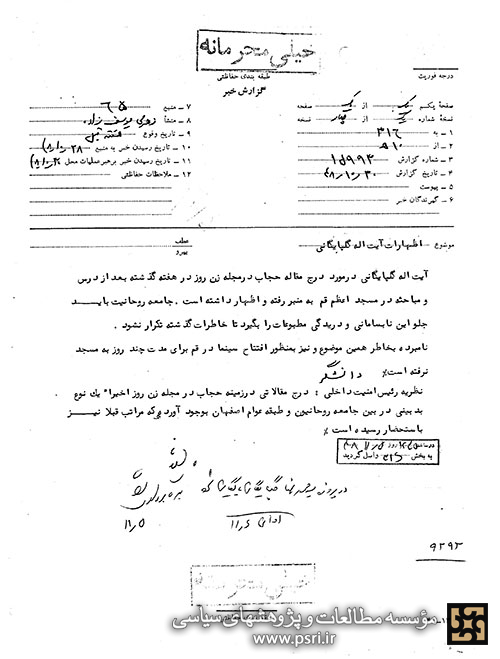 خیلی محرمانه
طبقه بندی حفاظتی
گزارش خبر
درجه فوریت
صفحه یکم یک از یک صفحه
نسخه شماره یک از چهار نسخه
۱ – به ۳۱۶
۲ – از ۵۱۰
۳ – شماره گزارش ۱۵۹۹۲
۴ – تاریخ گزارش ۴۸٫۱۰٫۳۰
۵ – پیوست
۶ – گیرندگان خبر
۷ – منبع ۶۵
۸ – منشأ
۹ – تاریخ وقوع هفته قبل
۱۰ – تاریخ رسیدن خبر به منبع ۴۸٫۱۰٫۲۸
۱۱ – تاریخ رسیدن خبر برهبر عملیات محل
۱۲ – ملاحظات حفاظتی
موضوع اظهارات آیت اله گلپایگانی
عطف
پیرو
آیت اله گلپایگانی درمورد درج مقاله حجاب درمجله زن روز در هفته گذشته بعد از درس
و مباحثه در مسجد اعظم قم به منبر رفته و اظهار داشته است . جامعه روحانیت بایــد
جلو این نابسامانی و دریدگی مطبوعات را بگیرد تا خاطرات گذشته تکرار نشود .
نامبرده بخاطر همین موضوع و نیز بمنظور افتتاح سینما در قم برای مدت چند روز به مسجد
نرفته است٪ دانشگر
نظریه رئیس امنیت داخلی : درج مقالاتی درزمینه حجاب در مجله زن روز اخیرا" یك نوع
بد بینی در بین جامعه روحانیون و طبقه عوام اصفهان بوجود آورده که مراتب قبلا نیــز
باستحضار رسیده است ٪
به بخش واصل گردید
در پرونده
۱۱٫۵
۱۱٫۶
۹۲۹۲
خیلی محرمانه
مؤسسه مطالعات و پژوهشهای سیاسی
www.psri.ir